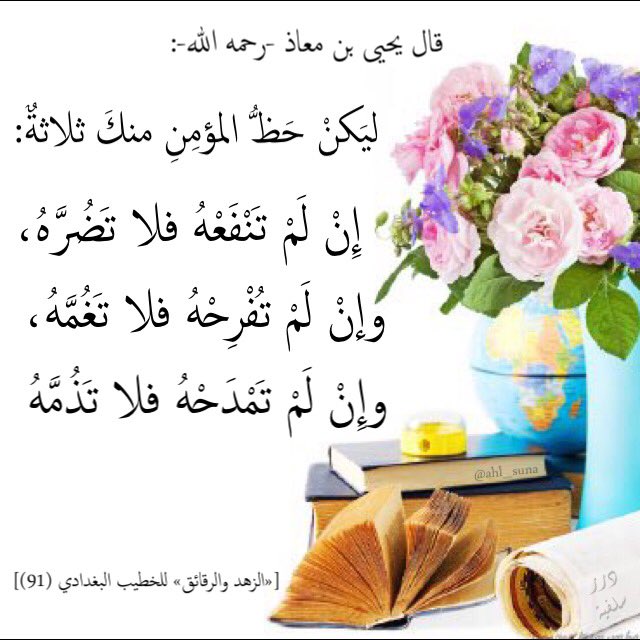 قال يحيى بن معاذ -رحمه الله-:
ليَكنْ حَظُّ المؤمِنِ منكَ ثلاثةٌ:
إِنْ لَمْ تَنْفَعْهُ فلا تَضُرَّهُ،
وإنْ لَمْ تُفْرِحْهُ فلا تَغُمَّهُ،
وإِنْ لَمْ تَمْدَحْهُ فلا تَذُمَّهُ
@ahl_suna
[«الزهد والرقائق» للخطيب البغدادي (91)]
درر
سلفية